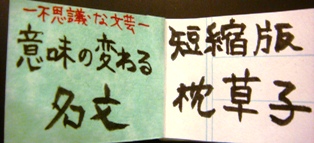 ―不思議な文芸―
意味の変わる
名文
短縮版
枕草子